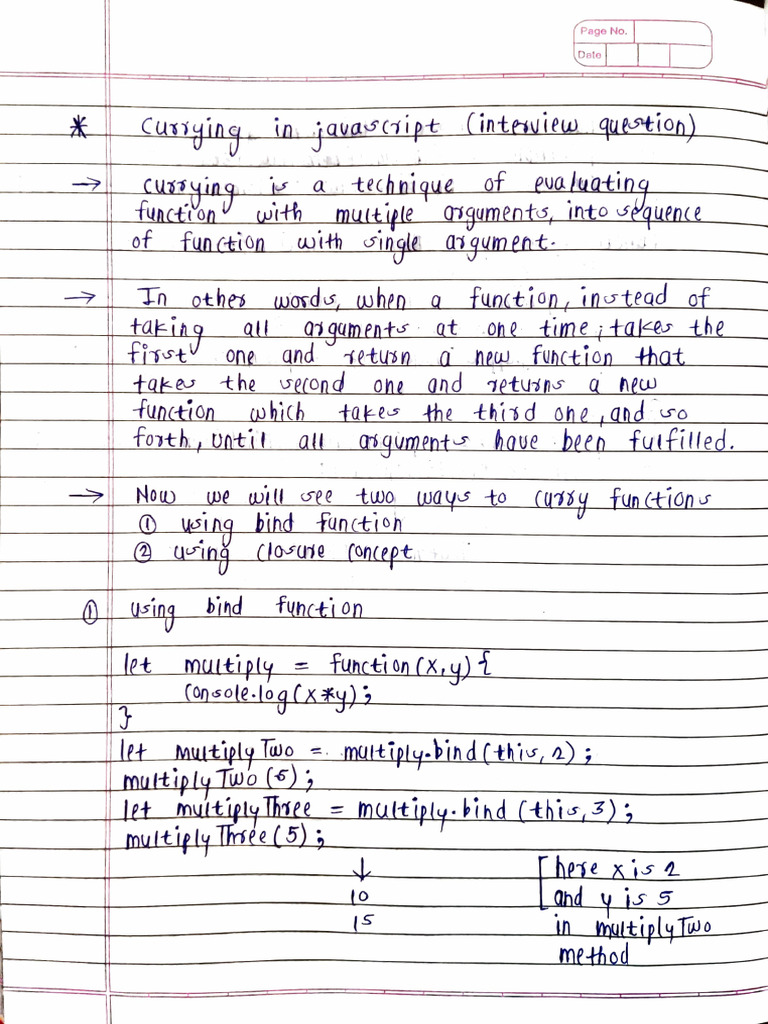 Page No.
Date
* Currying in javascript (interview question)
→ currying is a technique of evaluating
function with multiple arguments, into sequence
of function with single argument.
→ In other words, when a function, instead of
taking all arguments at one time, takes the
first one and return a new function that
takes the second one and returns a new
function which takes the third one, and so
forth, until all arguments have been fulfilled.
→ Now we will see two ways to curry functions
① using bind function
② using closure concept
① using bind function
let multiply = function(x,y){
console.log(x*y);
}
let multiplyTwo = multiply.bind(this,2);
multiplyTwo(5);
let multiplyThree = multiply.bind(this,3);
multiplyThree(5);
↓
10
15
[here x is 2
and y is 5
in multiplyTwo
method